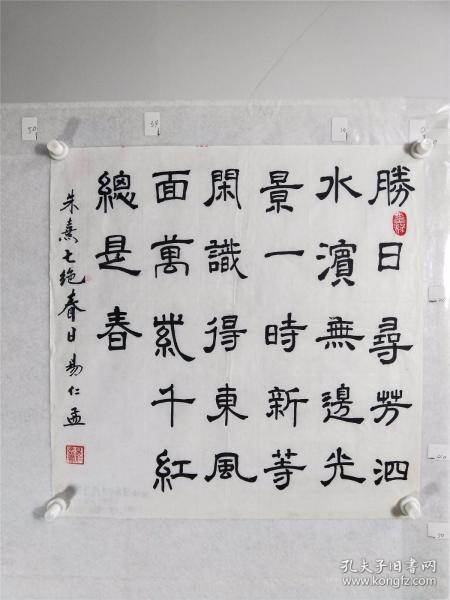 勝日尋芳泗
水濱無邊光
景一時新等
閑識得東風
面萬紫千紅
總是春
朱熹七绝春日易仁孟
孔夫子旧书网
www.kongfz.com